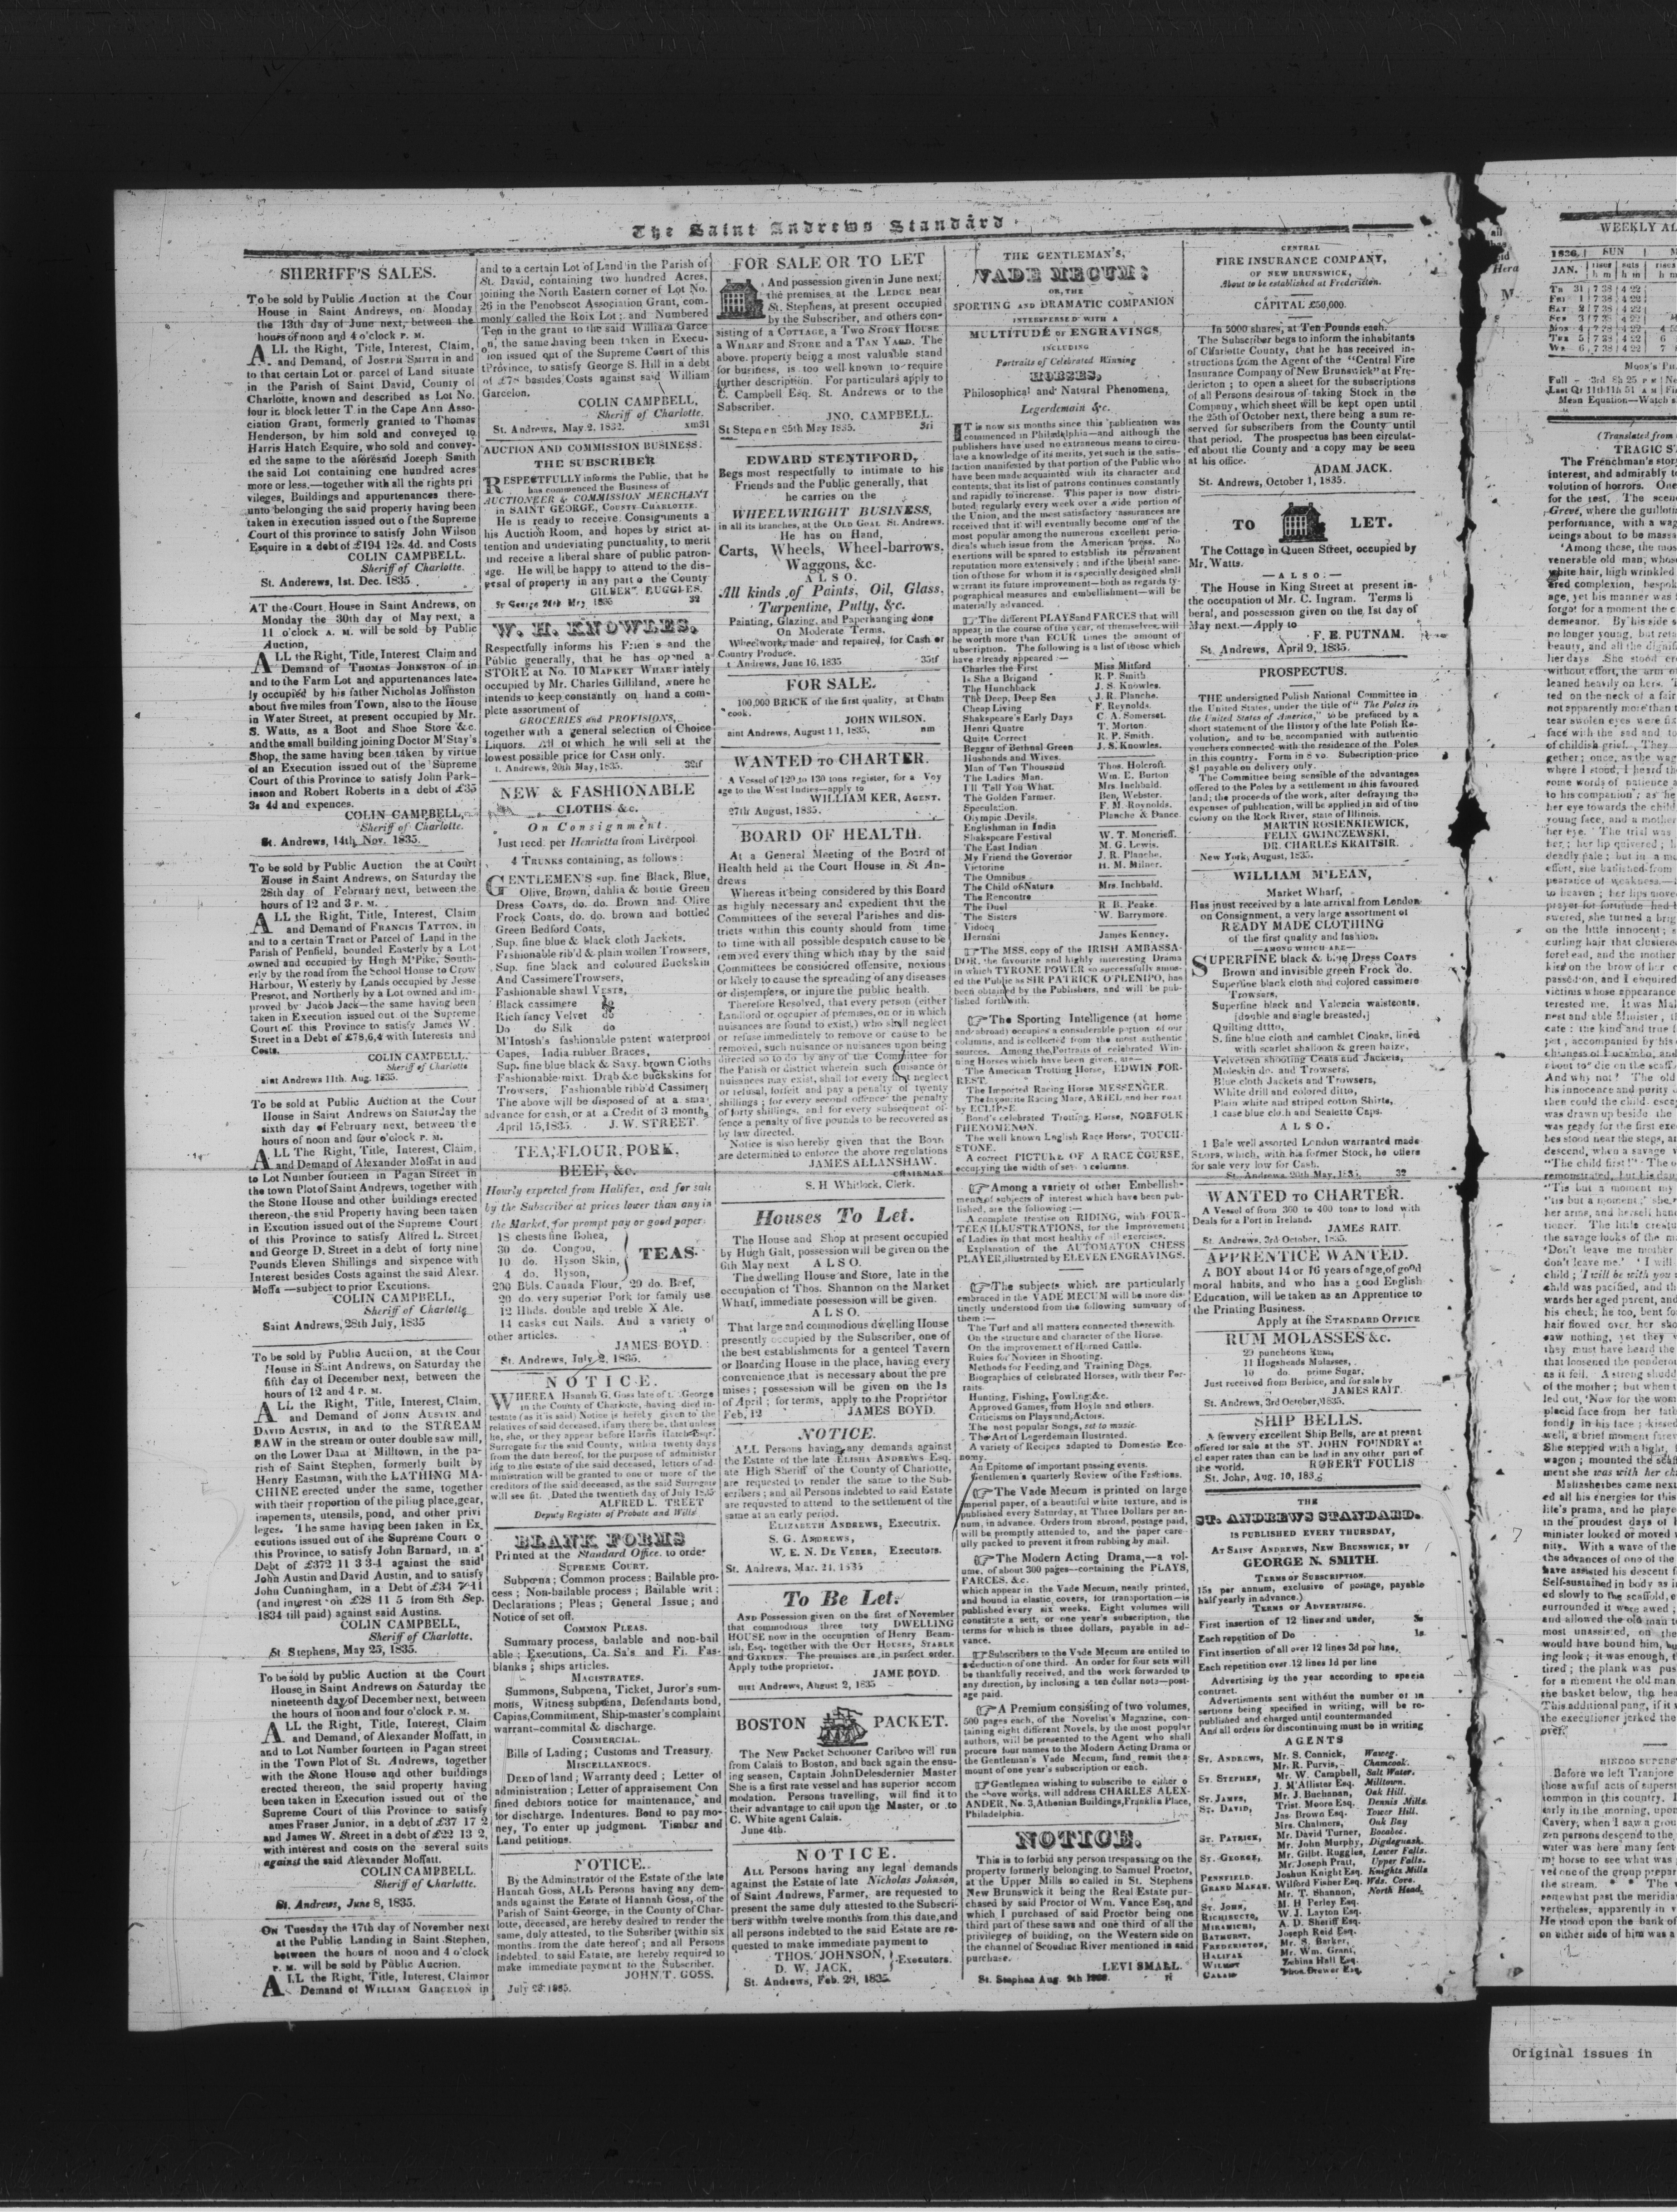 The Saint Andrews Standard
SHERIFF'S SALES.
To be sold by Public Auction at the Cour
House in Saint Andrews, on Monday
the 13th day of June next, between the
hours of noon and 4 o'clock P. M.
ALL the Right, Title, Interest, Claim,
and Demand, of JOSEPH SMITH in and
to that certain Lot or parcel of Land situate
in the Parish of Saint David, County of
Charlotte, known and described as Lot No.
four in block letter T in the Cape Ann Asso-
ciation Grant, formerly granted to Thomas
Henderson, by him sold and conveyed to
Harris Hatch Esquire, who sold and convey-
ed the same to the aforesaid Joseph Smith
the said Lot containing one hundred acres
more or less.—together with all the rights pri
vileges, Buildings and appurtenances there-
unto belonging the said property having been
taken in execution issued out o f the Supreme
Court of this province to satisfy John Wilson
Esquire in a debt of £194 12s. 4d. and Costs
COLIN CAMPBELL.
Sheriff of Charlotte.
St. Anderews, 1st. Dec. 1835
AT the Court House in Saint Andrews, on
Monday the 30th day of May next, a
11 o'clock A. M. will be sold by Public
Auction,
ALL the Right, Title, Interest Claim and
Demand of THOMAS JOHNSTON of in
and to the Farm Lot and appurtenances late-
ly occupied by his father Nicholas Johnston
about five miles from Town, also to the House
in Water Street, at present occupied by Mr.
S. Watts, as a Boot and Shoe Store &c.
and the small building joining Doctor M'Stay's
Shop, the same having been taken by virtue
of an Execution issued out of the Supreme
Court of this Province to satisfy John Park-
inson and Robert Roberts in a debt of £35
3s 4d and expences.
COLIN CAMPBELL,
Sheriff of Charlotte.
St. Andrews, 14th Nov. 1835.
To be sold by Public Auction the at Court
House in Saint Andrews, on Saturday the
28th day of February next, between the
hours of 12 and 3 P. M.
ALL the Right, Title, Interest, Claim
and Demand of FRANCIS TATTON, in
and to a certain Tract or Parcel of Land in the
Parish of Penfield, bounded Easterly by a Lot
owned and occupied by Hugh M'Pike, South-
erly by the road from the School House to Crow
Harbour, Westerly by Lands occupied by Jesse
Prescot, and Northerly by a Lot owned and im-
proved by Jacob Jack—the same having been
taken in Execution issued out of the Supreme
Court of this Province to satisfy James W.
Street in a Debt of £78,6,4 with Interests and
Costs.
COLIN CAMPBELL.
Sheriff of Charlotte
aint Andrews 11th. Aug. 1835.
To be sold at Public Auction at the Cour
House in Saint Andrews on Saturday the
sixth day of February next, between the
hours of noon and four o'clock P. M.
ALL The Right, Title, Interest, Claim,
and Demand of Alexander Moffat in and
to Lot Number fourteen in Pagan Street in
the town Plot of Saint Andrews, together with
the Stone House and other buildings erected
thereon, the said Property having been taken
in Excution issued out of the Supreme Court
of this Province to satisfy Alfred L. Street
and George D. Street in a debt of forty nine
Pounds Eleven Shillings and sixpence with
Interest besides Costs against the said Alexr.
Moffa —subject to prior Excutions.
COLIN CAMPBELL,
Sheriff of Charlotte
Saint Andrews, 28th July, 1835
To be sold by Public Auction, at the Cour
House in Saint Andrews, on Saturday the
fifth day of December next, between the
hours of 12 and 4 P. M.
ALL the Right, Title, Interest, Claim,
and Demand of JOHN AUSTIN and
DAVID AUSTIN, in and to the STREAM
SAW in the stream or outer double saw mill,
on the Lower Dam at Milltown, in the pa-
rish of Saint Stephen, formerly built by
Henry Eastman, with the LATHING MA-
CHINE erected under the same, together
with their proportion of the piling place, gear,
impements, utensils, pond, and other privi
leges. The same having been taken in Ex
ecutions issued out of the Supreme Court o
this Province, to satisfy John Barnard, in a
Debt of £372 11 3 3-4 against the said
John Austin and David Austin, and to satisfy
John Cunningham, in a Debt of £34 7 11
(and interest on £28 11 5 from 8th Sep.
1834 till paid) against said Austins.
COLIN CAMPBELL,
Sheriff of Charlotte.
St Stephens, May 23, 1835.
To be sold by public Auction at the Court
House in Saint Andrews on Saturday the
nineteenth day of December next, between
the hours of noon and four o'clock P. M.
ALL the Right, Title, Interest, Claim
and Demand, of Alexander Moffatt, in
and to Lot Number fourteen in Pagan street
in the Town Plot of St. Andrews, together
with the Stone House and other buildings
erected thereon, the said property having
been taken in Execution issued out of the
Supreme Court of this Province to satisfy
ames Fraser Junior, in a debt of £37 17 2
and James W. Street in a debt of £22 13 2,
with interest and costs on the several suits
against the said Alexander Moffatt.
COLIN CAMPBELL.
Sheriff of Charlotte.
St. Andrews, June 8, 1835.
On Tuesday the 17th day of November next
at the Public Landing in Saint Stephen,
between the hours of noon and 4 o'clock
P. M. will be sold by Public Auction.
ALL the Right, Title, Interest, Claim or
Demand of WILLIAM GARCELON in
and to a certain Lot of Land in the Parish of
St. David, containing two hundred Acres,
joining the North Eastern corner of Lot No.
26 in the Penobscot Association Grant, com-
monly called the Roix Lot; and Numbered
Ten in the grant to the said William Garce
on, the same having been taken in Execu-
ion issued out of the Supreme Court of this
Province, to satisfy George S. Hill in a debt
of £78 besides Costs against said William
Garcelon.
COLIN CAMPBELL,
Sheriff of Charlotte.
St. Andrews, May 2. 1832. xm31
AUCTION AND COMMISSION BUSINESS.
THE SUBSCRIBER
RESPECTFULLY informs the Public, that he
has commenced the Business of
AUCTIONEER & COMMISSION MERCHANT
in SAINT GEORGE, COUNTY CHARLOTTE.
He is ready to receive Consignments a
his Auction Room, and hopes by strict at-
tention and undeviating punctuality, to merit
and receive a liberal share of public patron-
age. He will be happy to attend to the dis-
posal of property in any part o the County
GILBERT RUGGLES.
St George 20th May 1835 32
W. H. KNOWLES,
Respectfully informs his Frien s and the
Public generally, that he has op ned a
STORE at No. 10 MARKET WHARF lately
occupied by Mr. Charles Gilliland, where he
intends to keep constantly on hand a com-
plete assortment of
GROCERIES and PROVISIONS,
together with a general selection of Choice
Liquors. All of which he will sell at the
lowest possible price for CASH only.
t. Andrews, 20th May, 1835. 32tf
NEW & FASHIONABLE
CLOTHS &c.
On Consignment.
Just recd. per Henrietta from Liverpool
4 TRUNKS containing, as follows:
GENTLEMEN'S sup. fine Black, Blue,
Olive, Brown, dahlia & bottle Green
Dress Coats, do. do. Brown and Olive
Frock Coats, do. do. brown and bottled
Green Bedford Coats,
Sup. fine blue & black cloth Jackets,
Fashionable rib'd & plain wollen Trowsers,
Sup. fine black and coloured Buckskin
And Cassimere Trowsers,
Fashionable shawl VESTS,
Black cassimere do
Rich fancy Velvet do
Do do Silk do
M'Intosh's fashionable patent waterproof
Capes, India rubber Braces,
Sup. fine blue black & Saxy. brown Cloths
Fashionable mixt. Drab &c buckskins for
Trowsers, Fashionable ribb'd Cassimer
The above will be disposed of at a sma
advance for cash, or at a Credit of 3 months
April 15, 1835. J. W. STREET
TEA, FLOUR, PORK,
BEEF, &c.
Hourly expected from Halifax, and for sale
by the Subscriber at prices lower than any in
the Market, for prompt pay or good paper:
18 chests fine Bohea,
30 do. Congou,
10 do. Hyson Skin,
4 do. Hyson,
TEAS
200 Bbls. Canada Flour, 20 do. Beef,
20 do. very superior Pork for family use
12 Hhds. double and treble X Ale.
14 casks cut Nails. And a variety of
other articles.
JAMES BOYD.
St. Andrews, July 2, 1835.
NOTICE.
WHEREA Hannah G. Goss late of t. George
in the County of Charlotte, having died in-
testate (as it is said) Notice is hereby given to the
relatives of said deceased, if any there be, that unless
he, she, or they appear before Harris Hatch Esqr.
Surrogate for the said County, within twenty days
from the date hereof, for the purpose of administer
ing to the estate of the said deceased, letters of ad-
ministration will be granted to one or more of the
creditors of the said deceased, as the said Surrogate
will see fit. Dated the twentieth day of July 1835
ALFRED L. TREET
Deputy Register of Probate and Wills
BLANK FORMS
Printed at the Standard Office. to order
SUPREME COURT.
Subpœna; Common process; Bailable pro-
cess; Non-bailable process; Bailable writ;
Declarations; Pleas; General Issue; and
Notice of set off.
COMMON PLEAS.
Summary process, bailable and non-bail
able; Executions, Ca. Sa's and Fi. Fas-
blanks; ships articles.
MAGISTRATES.
Summons, Subpœna, Ticket, Juror's sum-
mons, Witness subpœna, Defendants bond,
Capias, Commitment, Ship-master's complaint
warrant-commital & discharge.
COMMERCIAL.
Bills of Lading; Customs and Treasury.
MISCELLANEOUS.
DEED of land; Warranty deed; Letter of
administration; Letter of appraisement Con
fined debtors notice for maintenance, and
for discharge. Indentures. Bond to pay mo-
ney, To enter up judgment. Timber and
Land petitions.
NOTICE.
By the Administrator of the Estate of the late
Hannah Goss, ALL Persons having any dem-
ands against the Estate of Hannah Goss, of the
Parish of Saint George, in the County of Char-
lotte, deceased, are hereby desired to render the
same, duly attested, to the Subsriber within six
months from the date hereof; and all Persons
indebted to said Estate, are hereby required to
make immediate payment to the Subscriber.
JOHN T. GOSS.
July 23. 1835.
FOR SALE OR TO LET
And possession given in June next;
the premises at the LEDGE near
St. Stephens, at present occupied
by the Subscriber, and others con-
sisting of a COTTAGE, a Two STORY HOUSE
a WHARF and STORE and a TAN YARD. The
above property being a most valuable stand
for business, is too well known to require
further description. For particulars apply to
C. Campbell Esq. St. Andrews or to the
Subscriber.
JNO. CAMPBELL.
St Stepnen 25th May 1835. 3ti
EDWARD STENTIFORD,
Begs most respectfully to intimate to his
Friends and the Public generally, that
he carries on the
WHEELWRIGHT BUSINESS,
in all its branches, at the OLD GOAL St. Andrews.
He has on Hand,
Carts, Wheels, Wheel-barrows,
Waggons, &c.
ALSO.
All kinds of Paints, Oil, Glass,
Turpentine, Putty, &c.
Painting, Glazing, and Paperhanging done
On Moderate Terms.
Wheelwork made and repaired, for Cash or
Country Produce.
t Andrews, June 16, 1835 35tf
FOR SALE.
100,000 BRICK of the first quality, at Cham
cook.
JOHN WILSON.
aint Andrews, August 11, 1835. nm
WANTED TO CHARTER.
A Vessel of 120 to 130 tons register, for a Voy
age to the West Indies—apply to
WILLIAM KER, AGENT.
27th August, 1835.
BOARD OF HEALTH.
At a General Meeting of the Board of
Health held at the Court House in St An-
drews
Whereas it being considered by this Board
as highly necessary and expedient that the
Committees of the several Parishes and dis-
tricts within this county should from time
to time with all possible despatch cause to be
removed every thing which may by the said
Committees be considered offensive, noxious
or likely to cause the spreading of any diseases
or distempers, or injure the public health.
Therefore Resolved, that every person (either
Landlord or occupier of premises, on or in which
nuisances are found to exist,) who shall neglect
or refuse immediately to remove or cause to be
removed, such nuisance or nuisances upon being
directed so to do by any of the Committee for
the Parish or district wherein such nuisance or
nuisances may exist, shall for every first neglect
or refusal, forfeit and pay a penalty of twenty
shillings; for every second offence the penalty
of forty shillings, and for every subsequent of-
fence a penalty of five pounds to be recovered as
by law directed.
Notice is also hereby given that the Boan
are determined to enforce the above regulations
JAMES ALLANSHAW.
CHAIRMAN
S. H Whitlock, Clerk.
Houses To Let.
The House and Shop at present occupied
by Hugh Galt, possession will be given on the
6th May next ALSO.
The dwelling House and Store, late in the
occupation of Thos. Shannon on the Market
Wharf, immediate possession will be given.
ALSO.
That large and commodious dwelling House
presently occupied by the Subscriber, one of
the best establishments for a genteel Tavern
or Boarding House in the place, having every
convenience that is necessary about the pre
mises; possession will be given on the 1s
of April; for terms, apply to the Proprietor
Feb, 12 JAMES BOYD.
NOTICE.
ALL Persons having any demands against
the Estate of the late ELISHA ANDREWS Esq.
ate High Sheriff of the County of Charlotte,
are requested to render the same to the Sub-
scribers; and all Persons indebted to said Estate
are requested to attend to the settlement of the
same at an early period.
ELIZABETH ANDREWS, Executrix.
S. G. ANDREWS,
W. E. N. DE VEBER, Executors.
St. Andrews, Mar. 24, 1835
To be Let.
AND Possession given on the first of November
that commodious three tory DWELLING
HOUSE now in the occupation of Henry Beam-
ish, Esq. together with the OUT HOUSES, STABLE
and GARDEN. The premises are in perfect order.
Apply to the proprietor.
JAME BOYD.
aint Andrews, August 2, 1835
BOSTON PACKET.
The New Packet Schooner Cariboo will run
from Calais to Boston, and back again the ensu-
ing season, Captain John Delesdernier Master
She is a first rate vessel and has superior accom
modation. Persons travelling, will find it to
their advantage to call upon the Master, or to
C. White agent Calais.
June 4th.
NOTICE.
ALL Persons having any legal demands
against the Estate of late Nicholas Johnson,
of Saint Andrews, Farmer, are requested to
present the same duly attested to the Subscri-
bers within twelve months from this date, and
all persons indebted to the said Estate are re-
quested to make immediate payment to
THOS. JOHNSON,
D. W. JACK, Executors.
St. Andrews, Feb. 28, 1835.
THE GENTLEMAN'S,
VADE MECUM:
OR, THE
SPORTING AND DRAMATIC COMPANION
INTERSPERSED WITH A
MULTITUDE OF ENGRAVINGS,
INCLUDING
Portraits of Celebrated Winning
HORSES,
Philosophical and Natural Phenomena,
Legerdemain &c.
IT is now six months since this publication was
commenced in Philadelphia—and although the
publishers have used no extraneous means to circu-
late a knowledge of its merits, yet such is the satis-
faction manifested by that portion of the Public who
have been made acquainted with its character and
contents, that its list of patrons continues constantly
and rapidly to increase. This paper is now distri-
buted regularly every week over a wide portion of
the Union, and the most satisfactory assurances are
received that it will eventually become one of the
most popular among the numerous excellent perio-
dicals which issue from the American press. No
exertions will be spared to establish its permanent
reputation more extensively; and if the liberal sanc-
tion of those for whom it is especially designed shall
warrant its future improvement—both as regards ty-
pographical measures and embellishment—will be
materially advanced.
The different PLAYS and FARCES that will
appear in the course of the year, of themselves, will
be worth more than FOUR times the amount of
ubscription. The following is a list of those which
have already appeared:—
Charles the First Miss Mitford
Is She a Brigand R. P. Smith
The Hunchback J. S. Knowles.
The Deep, Deep Sea J. R. Planche.
Cheap Living F. Reynolds.
Shakspeare's Early Days C. A. Somerset.
Henri Quatre T. Morton.
Quite Correct R. P. Smith.
Beggar of Bethnal Green J. S. Knowles.
Husbands and Wives.
Man of Ten Thousand Thos. Holcroft.
The Ladies Man. Wm. E. Burton
I'll Tell You What. Mrs. Inchbald.
The Golden Farmer. Ben, Webster.
Speculation. F. M. Reynolds.
Olympic Devils. Planche & Dance
Englishman in India
Shakspeare Festival W. T. Moncrieff.
The East Indian M. G. Lewis.
My Friend the Governor J. R. Planche.
Victorine H. M. Milner.
The Omnibus
The Child of Nature Mrs. Inchbald.
The Rencontre
The Duel R B. Peake.
The Sisters W. Barrymore.
Vidocq
Hernani James Kenney.
The MSS. copy of the IRISH AMBASSA-
DOR, the favourite and highly interesting Drama
in which TYRONE POWER so successfully amus-
ed the Public as SIR PATRICK O'PLENIPO, has
been obtained by the Publishers, and will be pub-
lished forthwith.
The Sporting Intelligence (at home
and abroad) occupies a considerable portion of our
columns, and is collected from the most authentic
sources. Among the Portraits of celebrated Win-
ning Horses which have been given, are—
The American Trotting Horse, EDWIN FOR-
REST.
The Imported Racing Horse MESSENGER.
The favourite Racing Mare, ARIEL and her foal
by ECLIPSE.
Bond's celebrated Trotting Horse, NORFOLK
PHENOMENON.
The well known English Race Horse, TOUCH-
STONE.
A correct PICTURE OF A RACE COURSE,
occupying the width of seven columns.
Among a variety of other Embellish-
ments of subjects of interest which have been pub-
lished, are the following:—
A complete treatise on RIDING, with FOUR-
TEEN ILLUSTRATIONS, for the Improvement
of Ladies in that most healthy of all exercises.
Explanation of the AUTOMATON CHESS
PLAYER, illustrated by ELEVEN ENGRAVINGS.
The subjects which are particularly
embraced in the VADE MECUM will be more dis-
tinctly understood from the following summary of
them:—
The Turf and all matters connected therewith.
On the structure and character of the Horse.
On the improvement of Horned Cattle.
Rules for Novices in Shooting.
Methods for Feeding and Training Dogs.
Biographies of celebrated Horses, with their Por-
raits.
Hunting, Fishing, Fowling &c.
Approved Games, from Hoyle and others.
Criticisms on Plays and Actors.
The most popular Songs, set to music.
The Art of Legerdemain Ilustrated.
A variety of Recipes adapted to Domestic Eco-
nomy.
An Epitome of important passing events.
Gentlemen's quarterly Review of the Fashions.
The Vade Mecum is printed on large
imperial paper, of a beautiful white texture, and is
published every Saturday, at Three Dollars per an-
num, in advance. Orders from abroad, postage paid,
will be promptly attended to, and the paper care-
ully packed to prevent it from rubbing by mail.
The Modern Acting Drama,—a vol-
ume, of about 300 pages—containing the PLAYS,
FARCES, &c.
which appear in the Vade Mecum, neatly printed,
and bound in elastic covers, for transportation—is
published every six weeks. Eight volumes will
constitute a sett, or one year's subscription, the
terms for which is three dollars, payable in ad-
vance.
Subscribers to the Vade Mecum are entiled to
a deduction of one third. An order for four sets will
be thankfully received, and the work forwarded to
any direction, by inclosing a ten dollar note—post-
age paid.
A Premium consisting of two volumes,
500 pages each, of the Novelist's Magazine, con-
taining eight different Novels, by the most popular
authors, will be presented to the Agent who shall
procure four names to the Modern Acting Drama or
the Gentleman's Vade Mecum, fand remit the a-
mount of one year's subscription or each.
Gentlemen wishing to subscribe to either o
the above works, will address CHARLES ALEX-
ANDER, No. 3, Athenian Buildings, Franklin Place,
Philadelphia.
NOTICE.
This is to forbid any person trespassing on the
property formerly belonging to Samuel Proctor,
at the Upper Mills so called in St. Stephens
New Brunswick it being the Real Estate pur-
chased by said Proctor of Wm. Vance Esq, and
which I purchased of said Proctor being one
third part of these saws and one third of all the
privileges of building, on the Western side on
the channel of Scoudiac River mentioned in said
purchase.
LEVI SMALL.
St. Stephen Aug. 9th
CENTRAL
FIRE INSURANCE COMPANY,
OF NEW BRUNSWICK,
About to be established at Fredericton.
CAPITAL £50,000.
In 5000 shares, at Ten Pounds each.
The Subscriber begs to inform the inhabitants
of Charlotte County, that he has received in-
structions from the Agent of the "Central Fire
Insurance Company of New Brunswick" at Fre-
dericton; to open a sheet for the subscriptions
of all Persons desirous of taking Stock in the
Company, which sheet will be kept open until
the 25th of October next, there being a sum re-
served for subscribers from the County until
that period. The prospectus has been circulat-
ed about the County and a copy may be seen
at his office.
ADAM JACK.
St. Andrews, October 1, 1835.
TO LET.
The Cottage in Queen Street, occupied by
Mr. Watts.
—ALSO:—
The House in King Street at present in-
the occupation of Mr. C. Ingram. Terms li
beral, and possession given on the 1st day of
May next.—Apply to
F. E. PUTNAM.
St. Andrews, April 9, 1835.
PROSPECTUS.
THE undersigned Polish National Committee in
the United States, under the title of "The Poles in
the United States of America," to be prefaced by a
short statement of the History of the late Polish Re-
volution, and to be accompanied with authentic
vouchers connected with the residence of the Poles
in this country. Form in 8 vo. Subscription price
$1 payable on delivery only.
The Committee being sensible of the advantages
offered to the Poles by a settlement in this favoured
land; the proceeds of the work, after defraying the
expenses of publication, will be applied in aid of the
colony on the Rock River, state of Illinois.
MARTIN ROSIENKIEWICK,
FELIX GWINCZEWSKI,
DR. CHARLES KRAITSIR.
New York, August, 1835.
WILLIAM M'LEAN,
Market Wharf,
Has jnust received by a late arrival from London
on Consignment, a very large assortment of
READY MADE CLOTHING
of the first quality and fashion,
—AMONG WHICH ARE—
SUPERFINE black & blue Dress COATS
Brown and invisible green Frock do.
Superfine black cloth and colored cassimere
Trowsers,
Superfine black and Valencia waistcoats,
[double and single breasted,]
Quilting ditto,
S. fine blue cloth and camblet Cloaks, lined
with scarlet shalloon & green baize.
Velveteen shooting Coats and Jackets,
Moleskin do. and Trowsers,
Blue cloth Jackets and Trowsers,
White drill and colored ditto,
Plain white and striped cotton Shirts,
1 case blue cloth and Sealette Caps.
ALSO.
1 Bale well assorted London warranted made
SLOPS, which, with his former Stock, he offers
for sale very low for Cash.
St. Andrews, 20th May, 183 . 32
WANTED TO CHARTER.
A Vessel of from 300 to 400 tons to load with
Deals for a Port in Ireland.
JAMES RAIT.
St. Andrews, 3rd October, 1835.
APPRENTICE WANTED.
A BOY about 14 or 16 years of age, of good
moral habits, and who has a good English
Education, will be taken as an Apprentice to
the Printing Business.
Apply at the STANDARD OFFICE
RUM MOLASSES &c.
20 puncheons Rum,
11 Hogsheads Molasses,
10 do. prime Sugar,
Just received from Berbice, and for sale by
JAMES RAIT.
St. Andrews, 3rd October, 1835.
SHIP BELLS.
A fewvery excellent Ship Bells, are at presnt
offered for sale at the ST. JOHN FOUNDRY at
cl eaper rates than can be had in any other part of
the world.
ROBERT FOULIS
St. John, Aug. 10, 183
THE
ST. ANDREWS STANDARD.
IS PUBLISHED EVERY THURSDAY,
AT SAINT ANDREWS, NEW BRUNSWICK, BY
GEORGE N. SMITH.
TERMS OF SUBSCRIPTION.
15s per annum, exclusive of postage, payable
half yearly in advance.)
TERMS OF ADVERTISING.
First insertion of 12 lines and under, 3s
Each repetition of Do 1s
First insertion of all over 12 lines 3d per line,
Each repetition over 12 lines 1d per line
Advertising by the year according to specia
contract.
Advertisments sent without the number of in
sertions being specified in writing, will be re-
published and charged until countermanded
And all orders for discontinuing must be in writing
AGENTS
ST. ANDREWS, Mr. S. Connick, Waweg.
Mr. R. Purvis, Chamcook.
ST. STEPHEN, Mr. W. Campbell, Salt Water.
J. M'Allister Esq. Milltown.
ST. JAMES, Mr. J. Buchanan, Oak Hill.
ST. DAVID, Trist. Moore Esq. Dennis Mills.
Jas. Brown Esq. Tower Hill.
Mrs. Chalmers, Oak Bay
ST. PATRICK, Mr. David Turner, Bocabec.
Mr. John Murphy, Digdeguash.
ST. GEORGE, Mr. Gilbt. Ruggles, Lower Falls.
Mr. Joseph Pratt, Upper Falls.
PENNFIELD. Joshua Knight Esq. Knights Mills
GRAND MANAN. Wilford Fisher Esq. Wds. Cove.
Mr. T. Shannon, North Head.
ST. JOHN, M. H Perley Esq.
RICHIBUCTO, W. J. Layton Esq.
MIRAMICHI, A. D. Sheriff Esq.
BATHURST. Joseph Reid Esq.
FREDERICTON, Mr. S. Barker,
HALIFAX Mr. Wm. Grant,
WILMOT Zebina Hall Esq.
CALAIS Thos. Brewer Esq.
Hera
WEEKLY AL
1836. SUN
JAN. rises sets
h m h m
TH 31 7 38 4 22
FRI 1 7 38 4 22
SAT 2 7 38 4 22
SUN 3 7 38 4 22
MON 4 7 38 4 22
TUE 5 7 38 4 22
WE 6 7 38 4 22
MOON'S PH
Full - 3rd 8h 25 P M
Last Qr 11th 11h 51 A M
Mean Equation—Watch
(Translated from
TRAGIC S
The Frenchman's stor
interest, and admirably
volution of horrors. One
for the rest. The scen
Grevé, where the guilloti
performance, with a wag
beings about to be massa
'Among these, the mos
venerable old man, whos
white hair, high wrinkled
ered complexion, bespok
age, yet his manner was
forgot for a moment the
demeanor. By his side s
no longer young, but reta
beauty, and all the dignifi
her days She stood er
without effort, the arm of
leaned heavily on hers.
ted on the neck of a fair
not apparently more than
tear swolen eyes were fix
face with the sad and to
of childish grief. They
gether; once, as the wag
where I stood, I heard th
some words of patience a
to his companion; as he
her eye towards the child
young face, and a mother
her eye. The trial was
her; her lip quivered;
deadly pale; but in a mo
effort, she banished from
pearance of weakness.—
to heaven; her lips move
prayer for fortitude had
swered, she turned a brig
on the little innocent;
curling hair that clustere
forehead, and the mother
kied on the brow of her
passed on, and I enquired
victims whose appearance
terested me. It was Mal
nest and able Minister,
cate: the kind and true
yet, accompanied by his
chioness of Locambo, and
about to" die on the scaff
And why not? The old
his innocence and purity
then could the child. esca
was drawn up beside the
was ready for the first exe
bes stood near the steps, a
descend, when a savage
"The child first!" The
remonstrated, but his
"'Tis but a moment my
"'tis but a moment;" she
her arms, and herself han
tioner. The little creatu
the savage looks of the m
'Don't leave me mother
don't leave me.' 'I will
child; 'I will be with you
child was pacified, and th
wards her aged parent, and
his check; he too, bent fo
hair flowed over her sho
saw nothing, yet they
they must have heard the
that loosened the pondero
as it fell. A strong shudd
of the mother; but when
led out, 'Now for the wom
placid face from her fath
fondly in his face; kissed
well, a brief moment farev
She stepped with a light,
wagon; mounted the scaff
ment she was with her chi
Malisherbes came next
ed all his energies for this
life's prama, and he playe
in the proudest days of
minister looked or moved
nity. With a wave of the
the advances of one of the
have assisted his descent f
Self-sustained in body as i
ed slowly to the scaffold, e
surrounded it were awed
and allowed the old man
most unassisted, on the
would have bound him, bu
ing look; it was enough, t
tired; the plank was pus
for a moment the old man
the basket below, the hea
This additional pang, if it
the executioner jerked the
over.
HINDOO SUPERS
Before we left Tranjore
those awful acts of superst
common in this country. I
early in the morning, upon
Cavery, when I saw a grou
zen persons descend to the
water was here many feet
my horse to see what was
ved one of the group prepar
the stream. * * The
somewhat past the meridia
vertheless, apparently in v
He stood upon the bank of
on either side of him was a
Original issues in